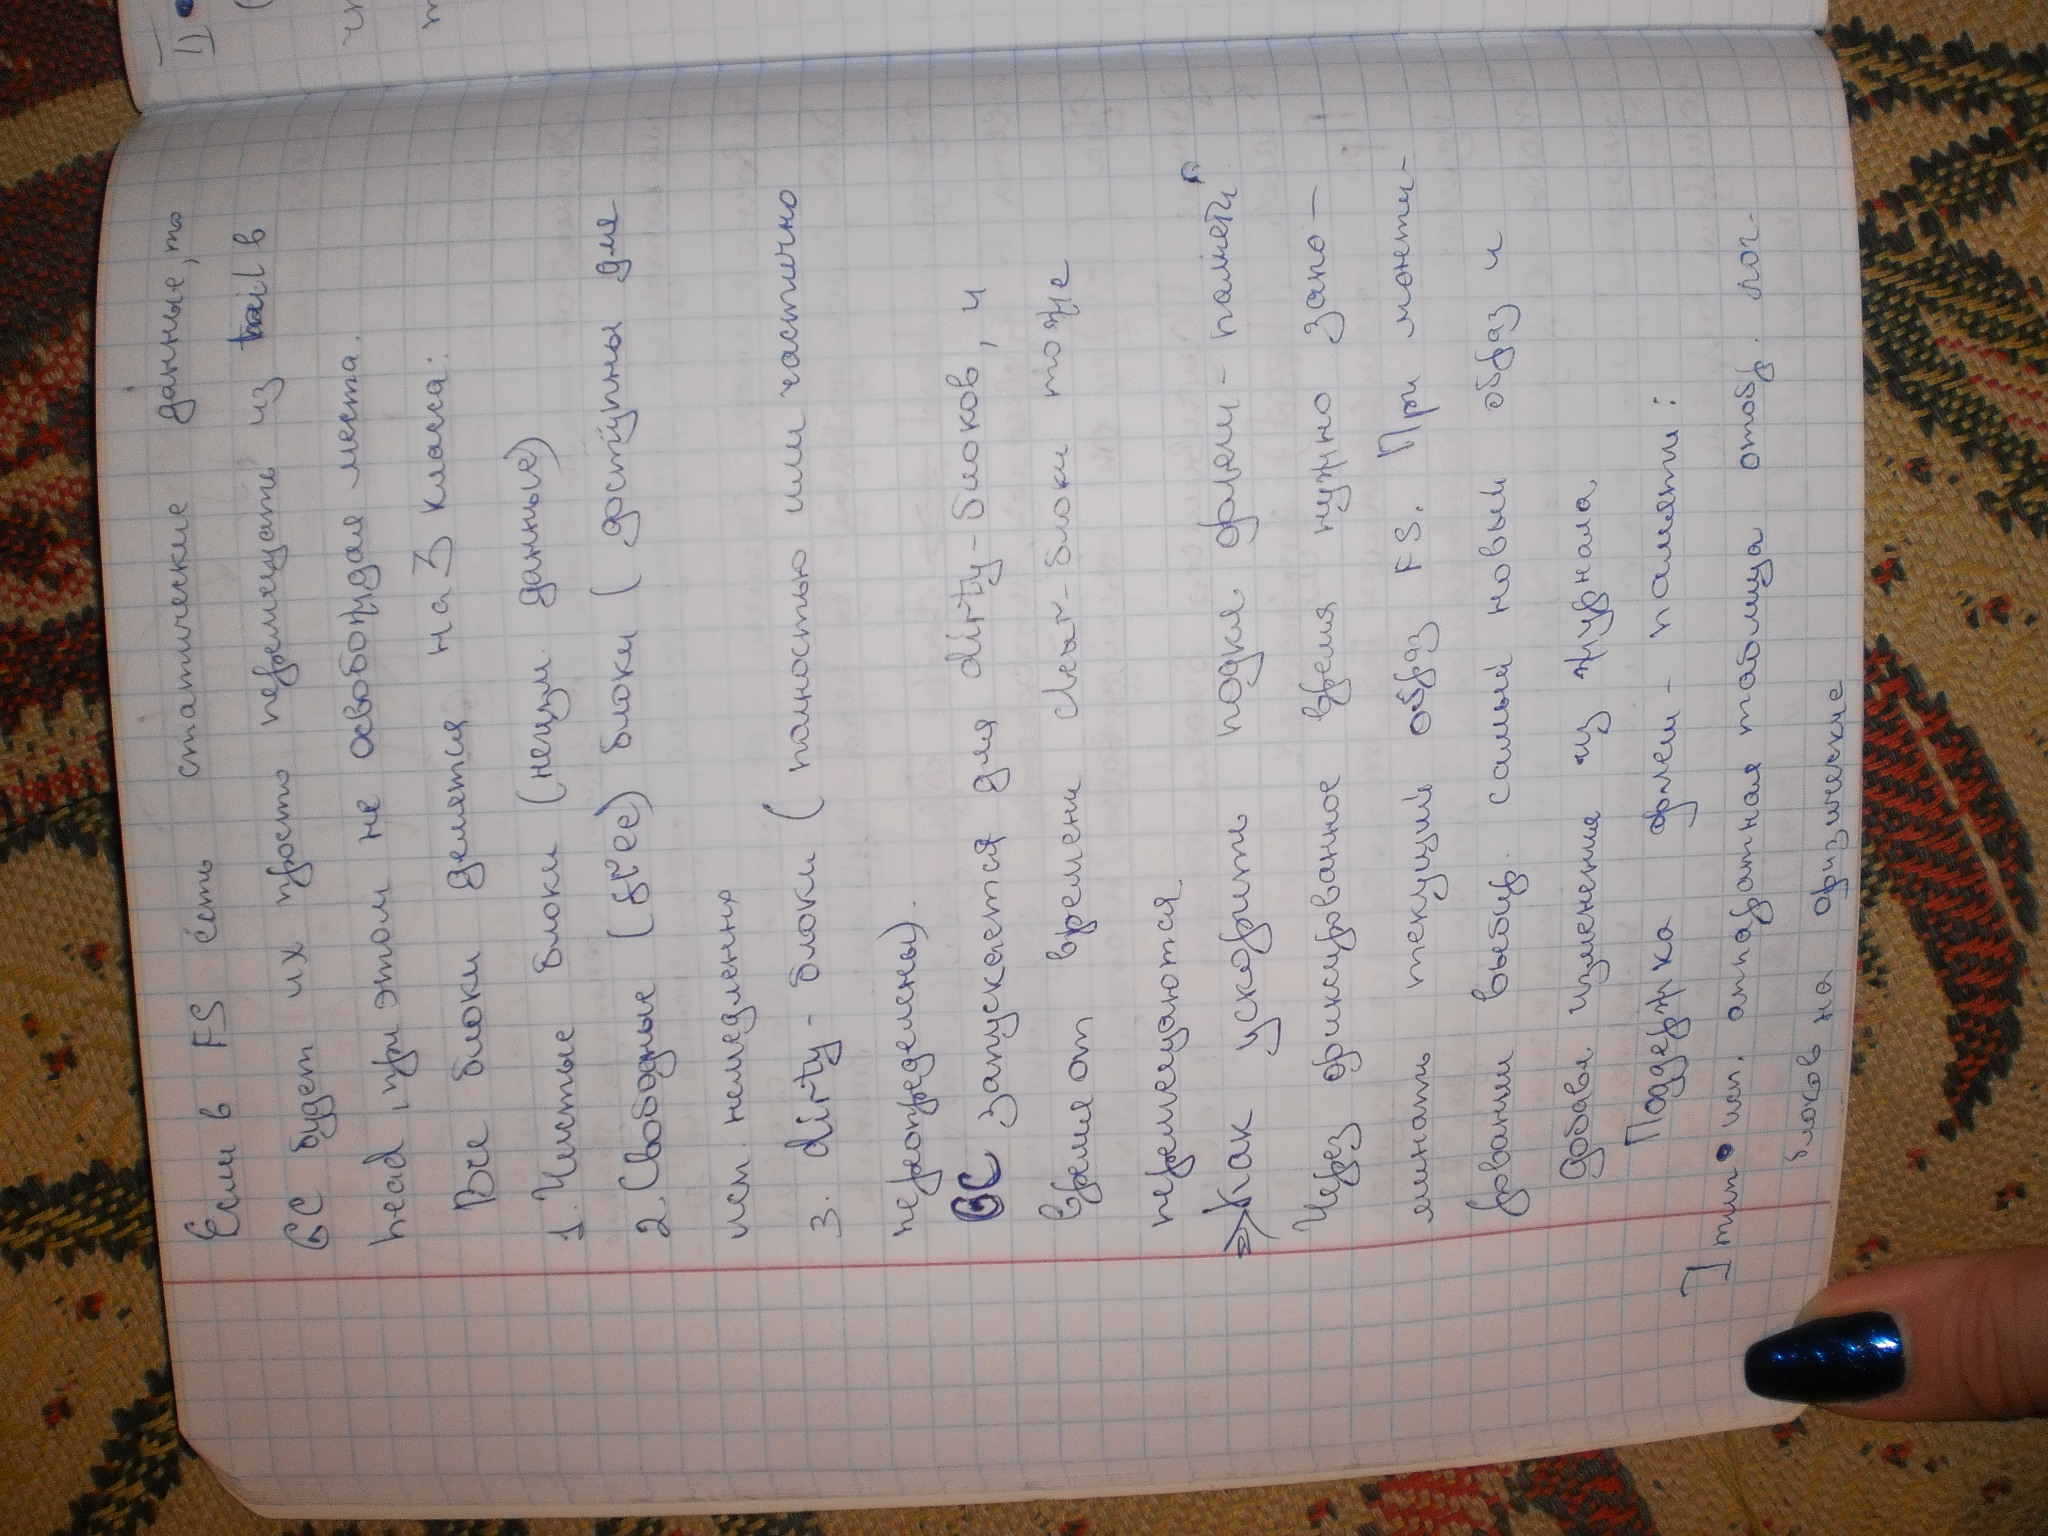 Если в FS есть статические данные, то
GC будет их просто перемещать из tail в
head, при этом не освобождая места.
Все блоки делятся на 3 класса:
1. Чистые блоки (неизм. данные)
2. Свободные (free) блоки ( доступны для
исп. немедленно
3. dirty - блоки ( полностью или частично
переопределены).
GC запускается для dirty-блоков, и
время от времени clear-блоки тоже
перемещаются.
Как ускорить подкл флеш-памяти?
Через фиксированное время нужно запо-
минать текущий образ FS. При монти-
ровании выбир. самый новый образ и
добавл. изменения из журнала
Поддержка флеш-памяти:
I тип • исп. аппаратная таблица отобр. лог.
блоков на физические
II)